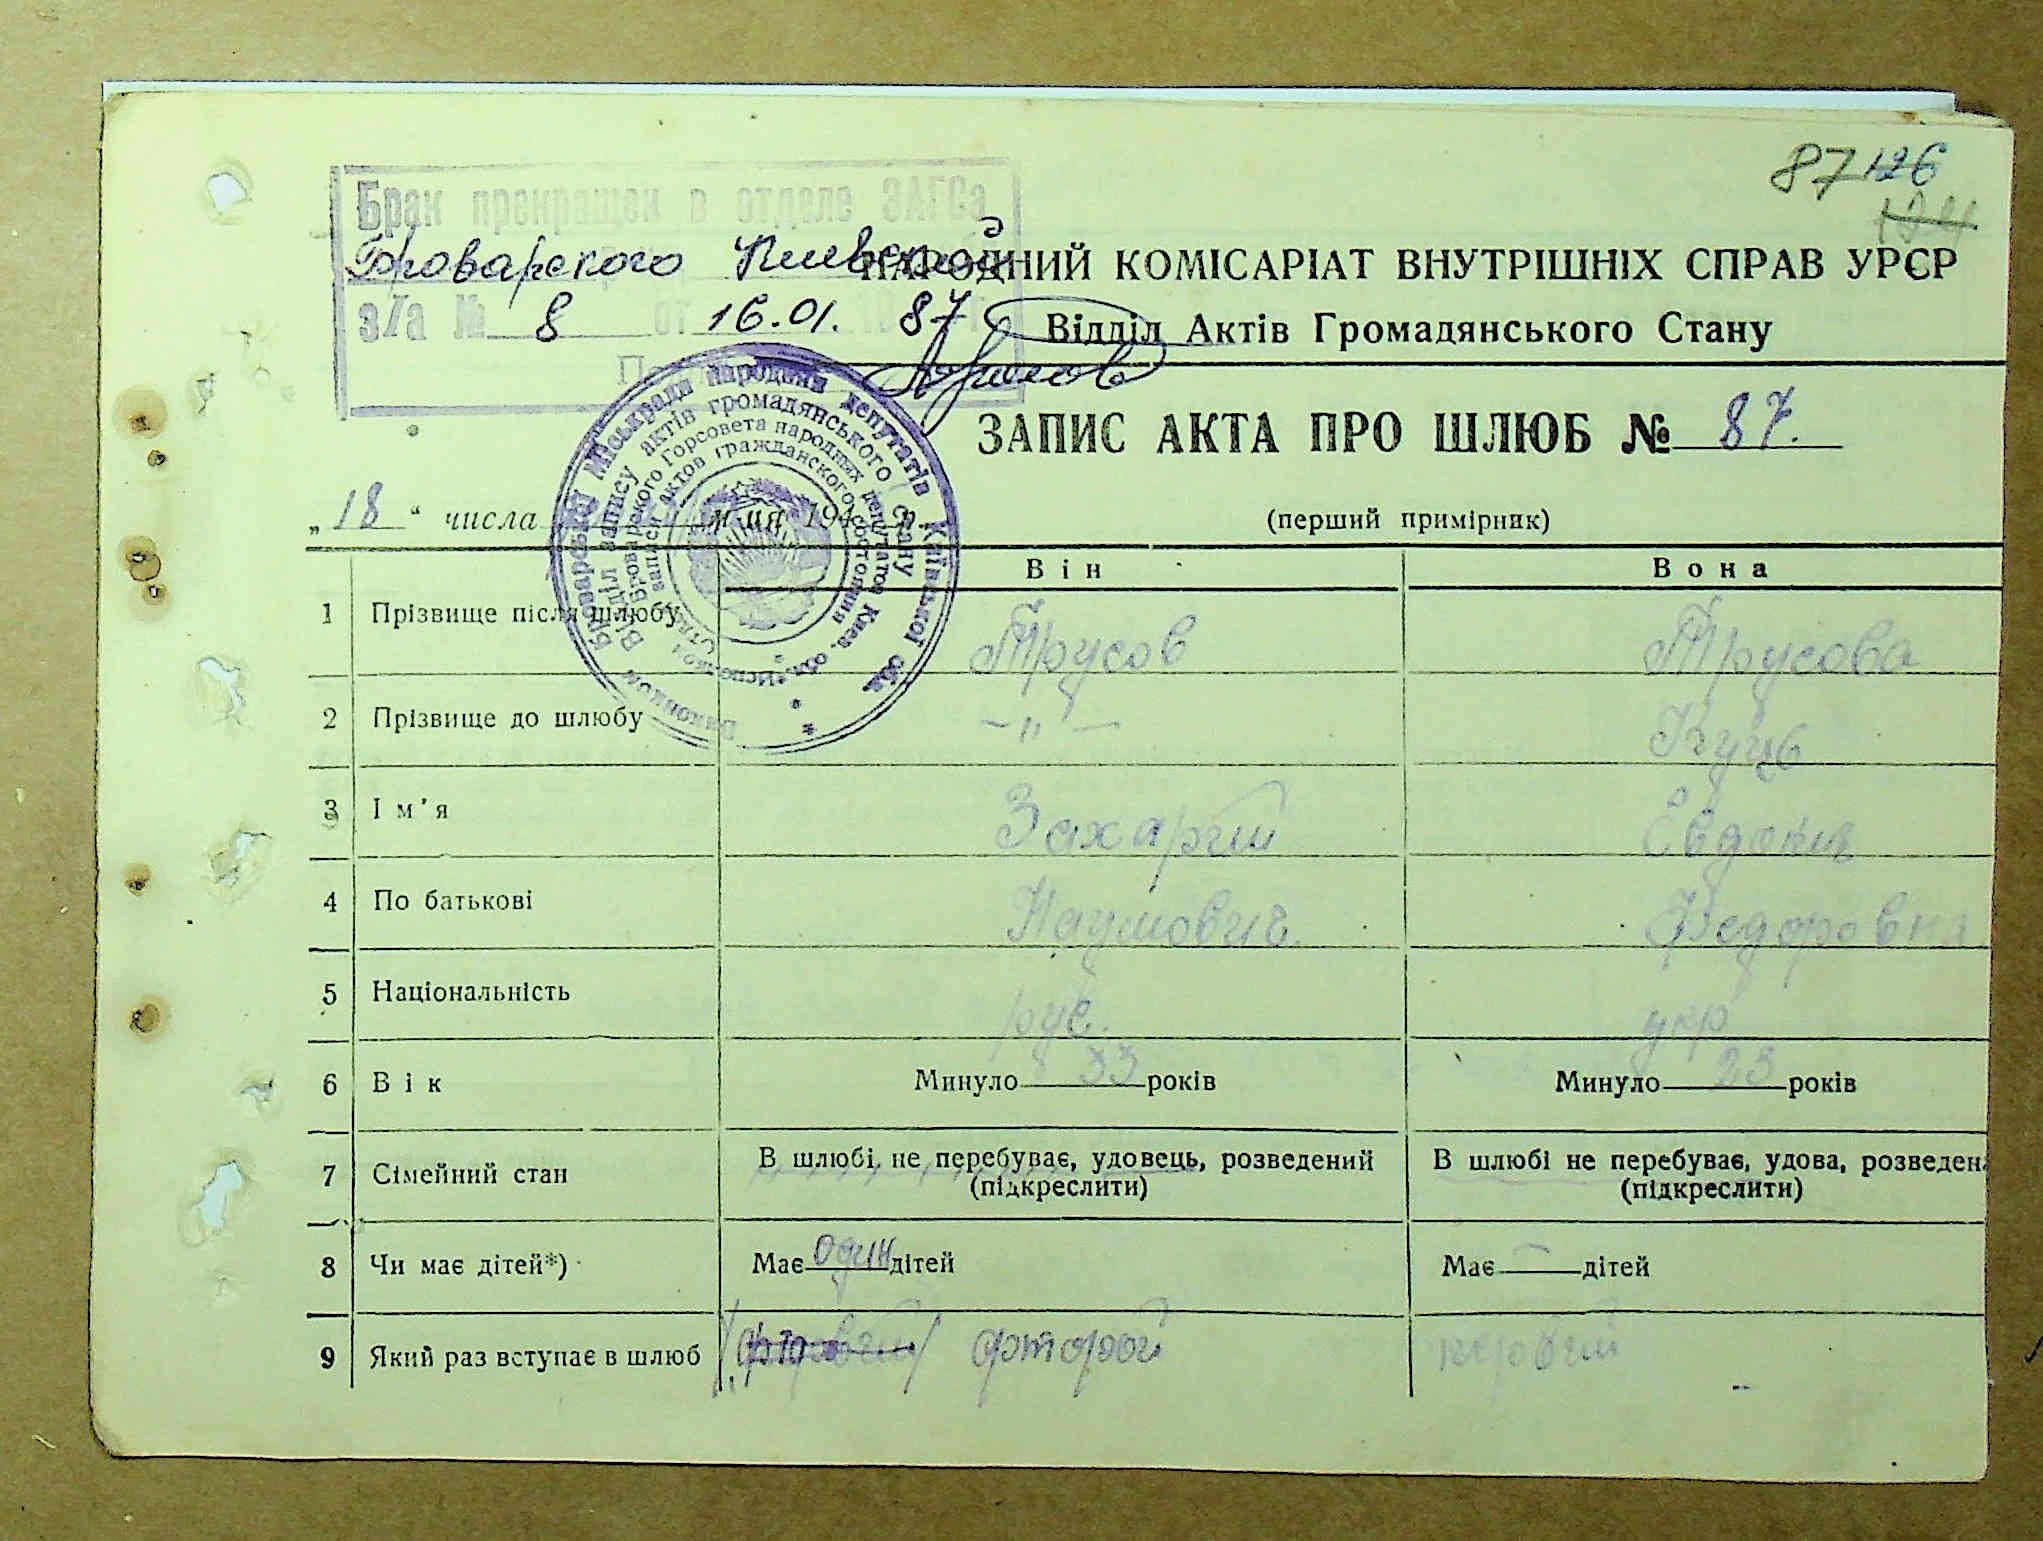 87 126
Брак прекращен в отделе ЗАГСа
Броварского Киевской
НАРОДНИЙ КОМІСАРІАТ ВНУТРІШНІХ СПРАВ УРСР
з/а № 8 от 16.01. 1987 г.
Відділ Актів Громадянського Стану
ЗАПИС АКТА ПРО ШЛЮБ № 87.
„18“ числа м-ця 194 р.
(перший примірник)
Він Вона
1 Прізвище після шлюбу Трусов Трусова
2 Прізвище до шлюбу —„— Куць
3 Ім'я Захарій Євдокія
4 По батькові Наумович Федоровна
5 Національність рус. укр
6 Вік Минуло 33 років Минуло 23 років
7 Сімейний стан В шлюбі не перебуває, удовець, розведений В шлюбі не перебуває, удова, розведен
(підкреслити) (підкреслити)
8 Чи має дітей*) Має один дітей Має — дітей
9 Який раз вступає в шлюб фторой первий
Виконком Броварської Міськради народних депутатів Київської обл.
Відділ запису актів громадянського стану
Исполком Броварского Горсовета народных депутатов Киев. обл.
Отдел записи актов гражданского состояния